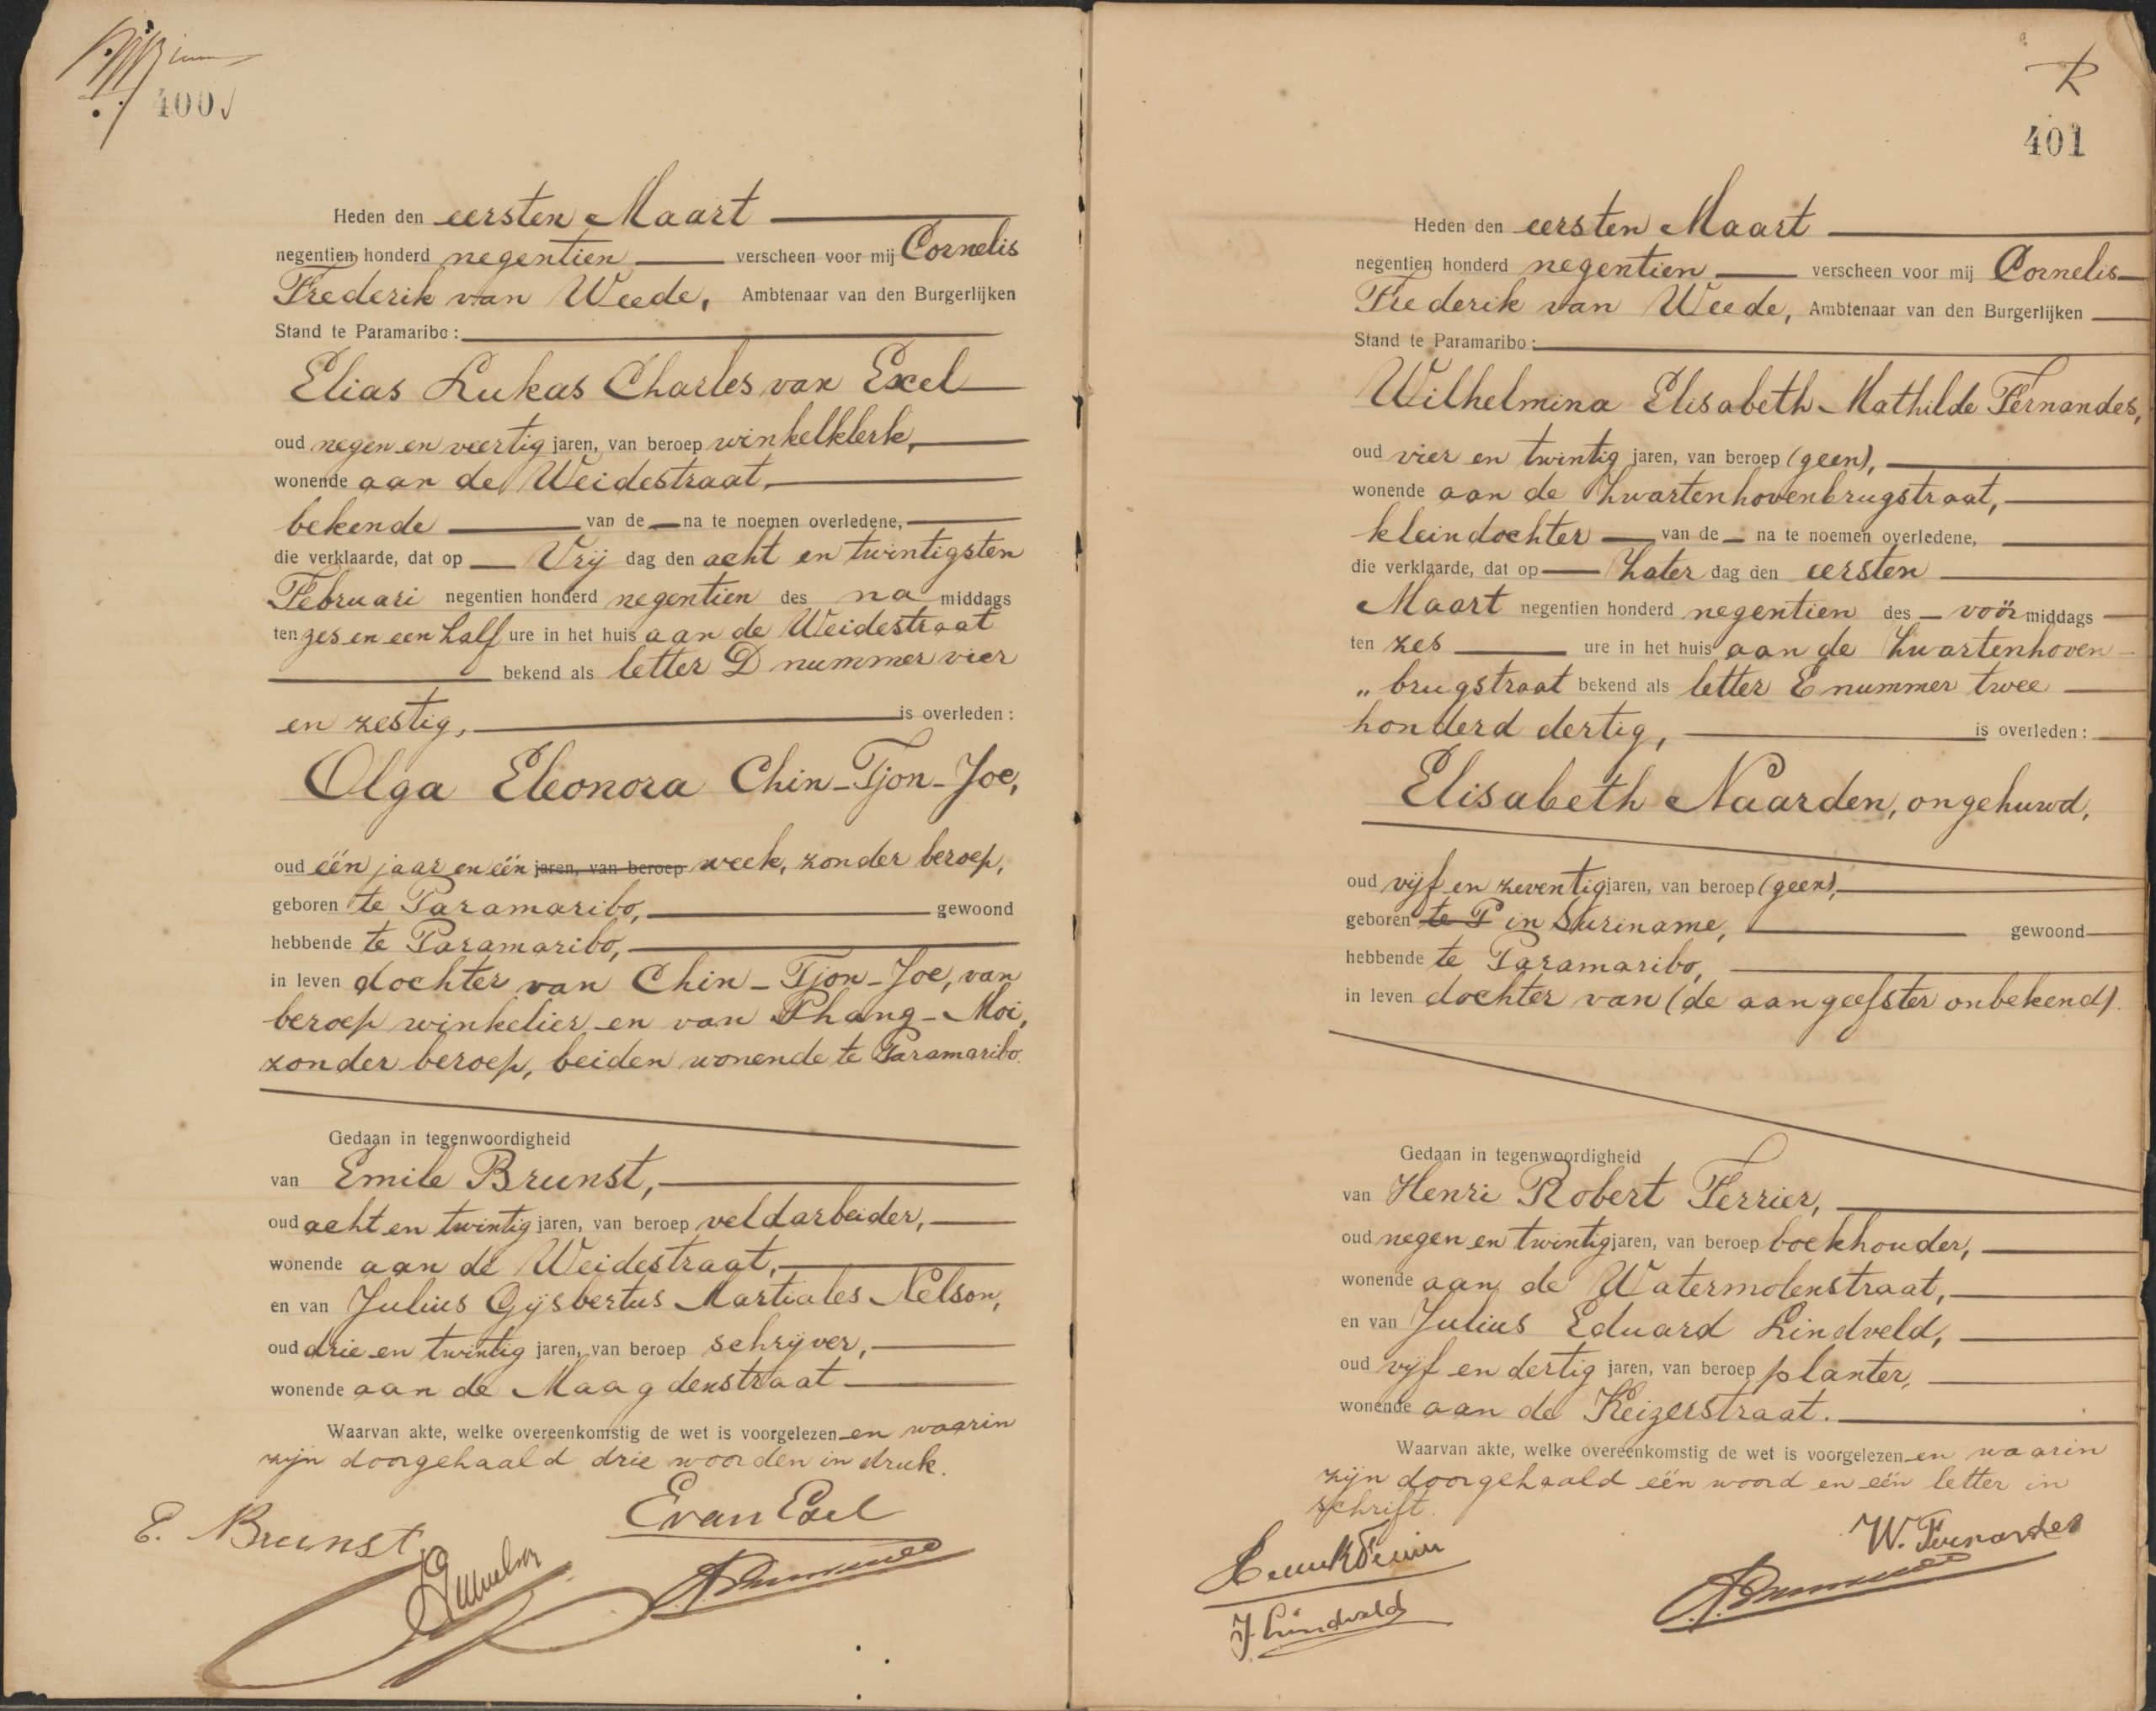 400
Heden den eersten Maart
negentien honderd negentien verscheen voor mij Cornelis
Frederik van Weede, Ambtenaar van den Burgerlijken
Stand te Paramaribo:
Elias Lukas Charles van Exel
oud negen en veertig jaren, van beroep winkelklerk,
wonende aan de Weidestraat,
bekende van de na te noemen overledene,
die verklaarde, dat op Vrij dag den acht en twintigsten
Februari negentien honderd negentien des na middags
ten zes en een half ure in het huis aan de Weidestraat
bekend als letter D nummer vier
en zestig, is overleden:
Olga Eleonora Chin-Tjon-Joe,
oud één jaar en één jaren, van beroep week, zonder beroep,
geboren te Paramaribo, gewoond
hebbende te Paramaribo,
in leven dochter van Chin-Tjon-Joe, van
beroep winkelier en van Phang-Moi,
zonder beroep, beiden wonende te Paramaribo.
Gedaan in tegenwoordigheid
van Emile Brunst,
oud acht en twintig jaren, van beroep veldarbeider,
wonende aan de Weidestraat,
en van Julius Gijsbertus Martiales Nelson,
oud drie en twintig jaren, van beroep schrijver,
wonende aan de Maagdenstraat
Waarvan akte, welke overeenkomstig de wet is voorgelezen en waarin
zijn doorgehaald drie woorden in druk.
E van Exel
E. Brunst
401
Heden den eersten Maart
negentien honderd negentien verscheen voor mij Cornelis
Frederik van Weede, Ambtenaar van den Burgerlijken
Stand te Paramaribo:
Wilhelmina Elisabeth Mathilde Fernandes,
oud vier en twintig jaren, van beroep (geen),
wonende aan de Zwartenhovenbrugstraat,
kleindochter van de na te noemen overledene,
die verklaarde, dat op Zater dag den eersten
Maart negentien honderd negentien des voör middags
ten zes ure in het huis aan de Zwartenhoven
„ brugstraat bekend als letter E nummer twee
honderd dertig, is overleden:
Elisabeth Naarden, ongehuwd,
oud vijf en zeventig jaren, van beroep (geen),
geboren te P in Suriname, gewoond
hebbende te Paramaribo,
in leven dochter van (de aangeefster onbekend).
Gedaan in tegenwoordigheid
van Henri Robert Ferrier,
oud negen en twintig jaren, van beroep boekhouder,
wonende aan de Watermolenstraat,
en van Julius Eduard Lindveld,
oud vijf en dertig jaren, van beroep planter,
wonende aan de Keizerstraat.
Waarvan akte, welke overeenkomstig de wet is voorgelezen en waarin
zijn doorgehaald één woord en één letter in
schrift.
W. Fernandes
J. Lindveld